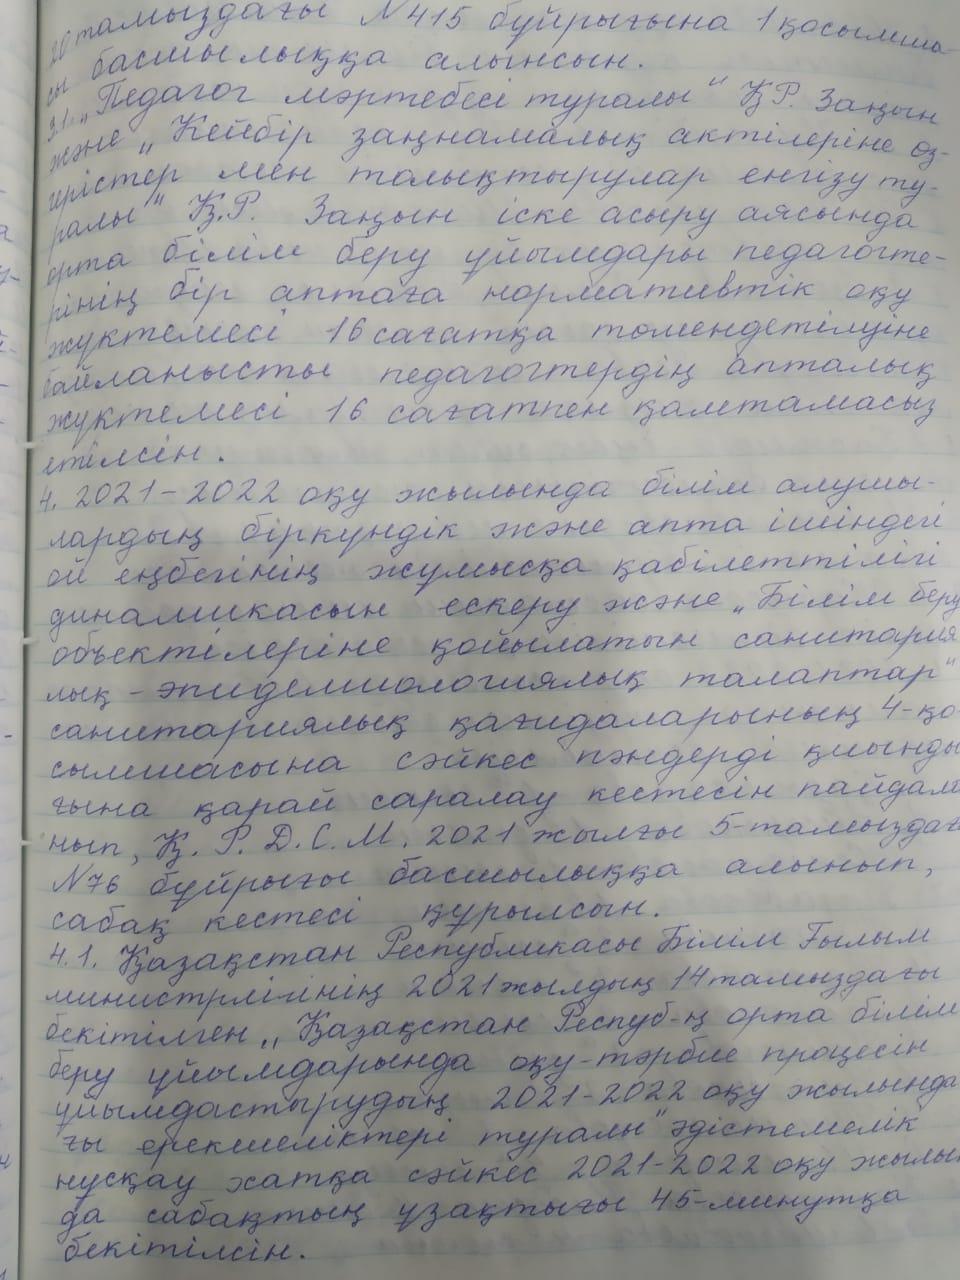 20 тамыздағы №415 бұйрығына 1 қосымша-
сы басшылыққа алынсын.
3.1. „Педагог мәртебесі туралы" Қ.Р. Заңын
және „Кейбір заңнамалық актілеріне өз-
герістер мен толықтырулар енгізу ту-
ралы" Қ.Р. Заңын іске асыру аясында
орта білім беру ұйымдары педагогте-
рінің бір аптаға нормативтік оқу
жүктемесі 16 сағатқа төмендетілуіне
байланысты педагогтердің апталық
жүктемесі 16 сағатпен қамтамасыз
етілсін.
4. 2021-2022 оқу жылында білім алушы-
лардың біркүндік және апта ішіндегі
ой еңбегінің жұмысқа қабілеттілігі
динамикасын ескеру және „Білім беру
объектілеріне қойылатын санитария
лық-эпидемиологиялық талаптар"
санитариялық қағидаларының 4-қо
сымшасына сәйкес пәндерді қиынды
ғына қарай саралау кестесін пайдала
нып, Қ.Р.Д.С.М. 2021 жылғы 5-тамыздағ
№76 бұйрығы басшылыққа алынып,
сабақ кестесі құрылсын.
4.1. Қазақстан Республикасы Білім Ғылым
министрлігінің 2021 жылдың 14 тамыздағы
бекітілген „Қазақстан Респуб-ң орта білім
беру ұйымдарында оқу-тәрбие процесін
ұйымдастырудың 2021-2022 оқу жылында
ғы ерекшеліктері туралы" әдістемелік
нұсқау хатқа сәйкес 2021-2022 оқу жылын
да сабақтың ұзақтығы 45-минутқа
бекітілсін.